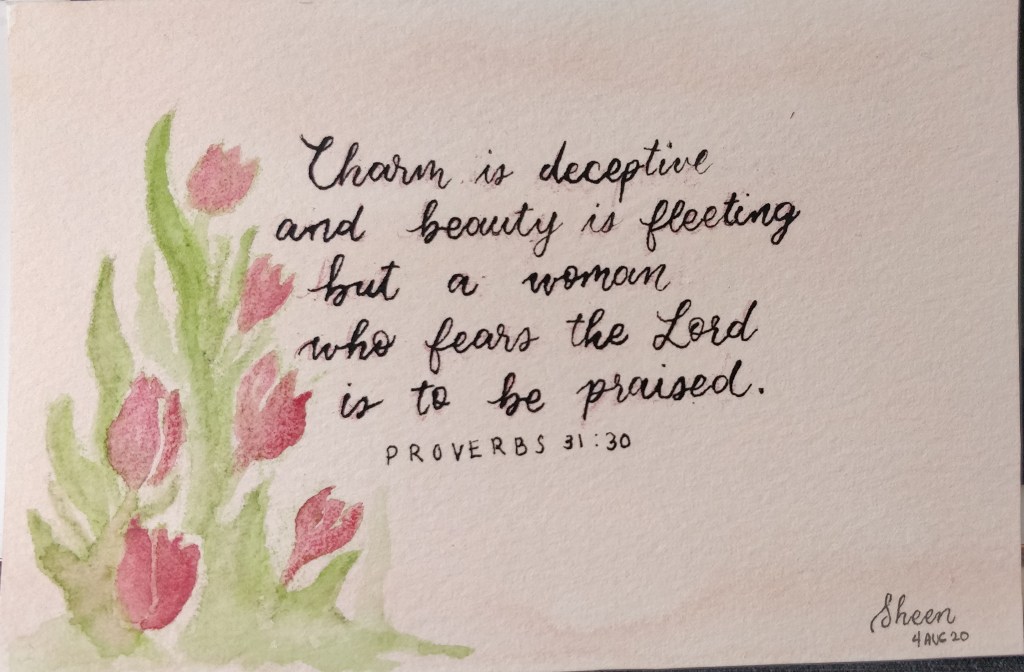 Charm is deceptive
and beauty is fleeting
but a woman
who fears the Lord
is to be praised.
PROVERBS 31:30
Sheen
4 AUG 20